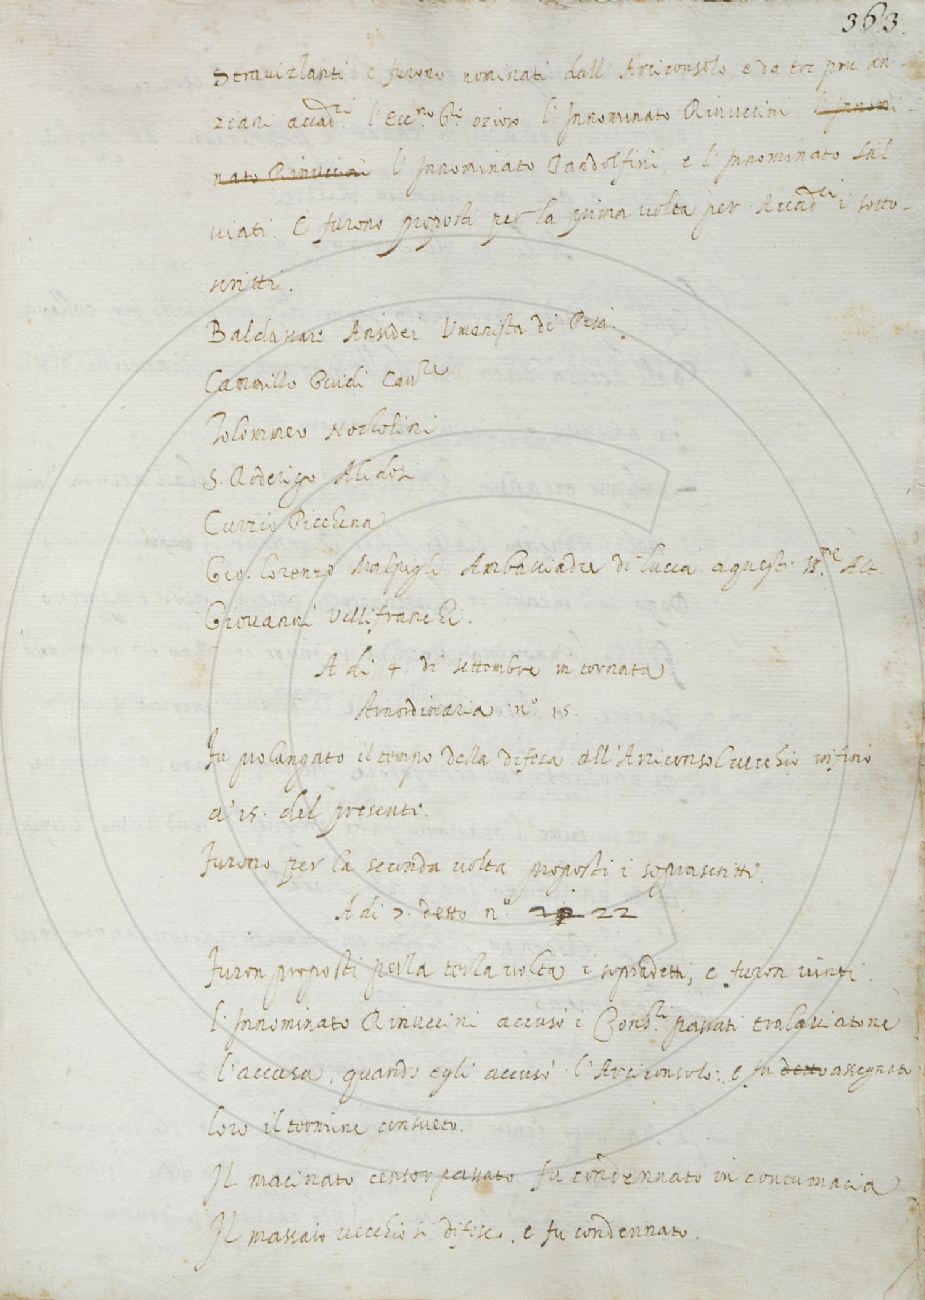 363.
Stravizzanti e furono nominati dall'Arciconsolo, e da tre più an-
ziani accad.ci l'Ecc.mo G.li ozioso l'Innominato Rinuccini l'Innomi-
nato Rinuccini l'Innominato Pandolfini, e l'Innominato Sal
viati. E furono proposti per la prima volta per Accad.ci i sotto-
scritti.
Baldassare Ansidei Umanista di Pisa.
Cammillo Guidi Cav.re
Tolommeo Nozzolini
S. Roderigo Alidosi
Curzio Picchena
Gio. Lorenzo Malpigli Ambasciadre di Lucca a questi Alt.
Giovanni Vellifranchi.
A di 4. di settembre in tornata
straordinaria n.o 15.
Fu prolungato il tempo della difesa all'Arciconsol vecchio infino
a' 15. del presente.
Furono per la seconda volta proposti i soprascritti.
A di 7. detto n.o 22
Furon proposti per la terza volta i sopradetti, e furon vinti.
l'Innominato Rinuccini accusò i Cons.ri passati tralasciatone
l'accusa, quando egli accusò l'Arciconsolo: e fu detto assegnato
loro il termine consueto.
Il macinato censor passato fu condennato in contumacia
Il massaio vecchio si difese. e fu condennato.